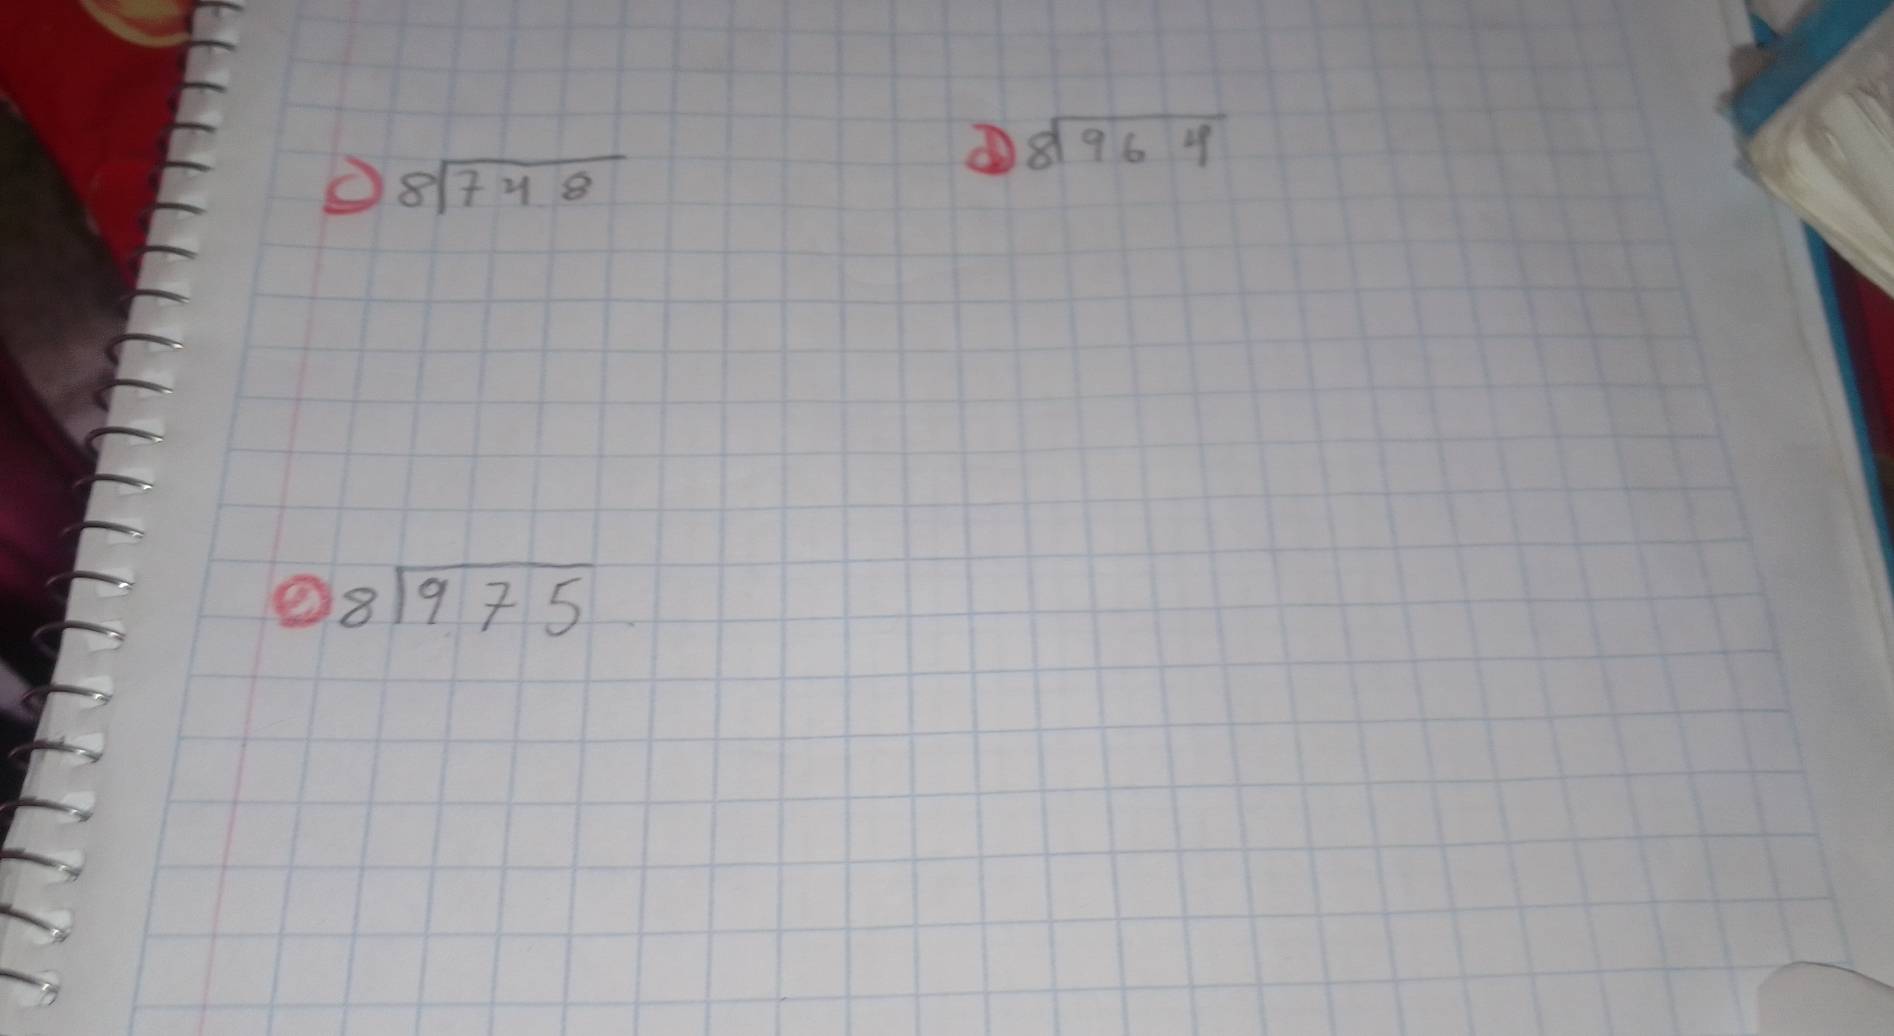 c) 8 748
d) 8 964
e) 8 975